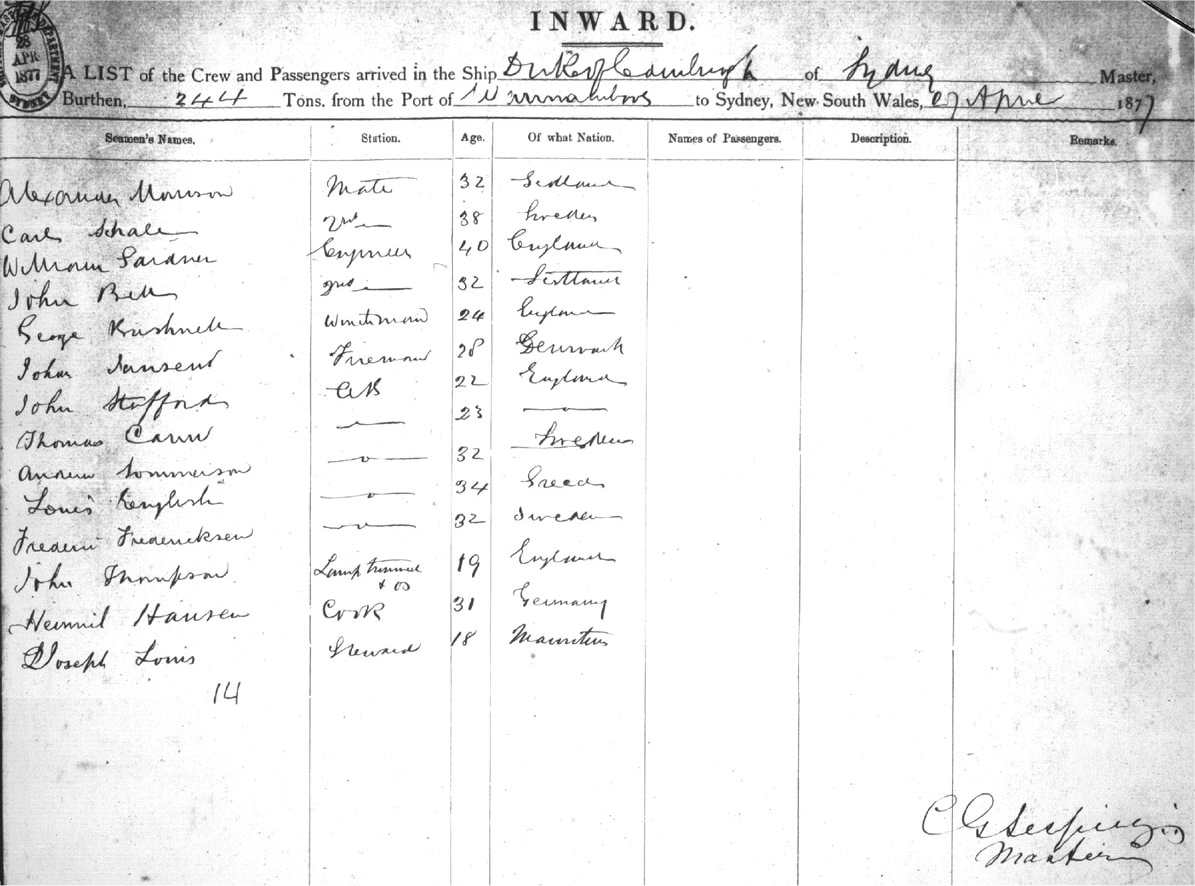 INWARD.
28
APR
1877
SYDNEY
A LIST of the Crew and Passengers arrived in the Ship of Sydney Master,
Burthen, 244 Tons. from the Port of to Sydney, New South Wales, 27 April 1877
Seamen's Names. Station. Age. Of what Nation. Names of Passengers. Description. Remarks.
Alexander Morrison Mate 32 Scotland
Carl 2nd 38 Sweden
William Gardner Engineer 40 England
John Bell 2nd 32 Scotland
George 24 England
Johan Jansend Fireman 28 Denmark
John Stafford AB 22 England
Thomas Cann —o— 23 —o—
Andrew Sommerson —o— 32 Sweden
Louis English —o— 34 Greece
Frederic Fredericksen —o— 32 Sweden
John Thompson Lamp trimmer & OS 19 England
Hansen Cook 31 Germany
Joseph Louis Steward 18 Mauritius
14
Master